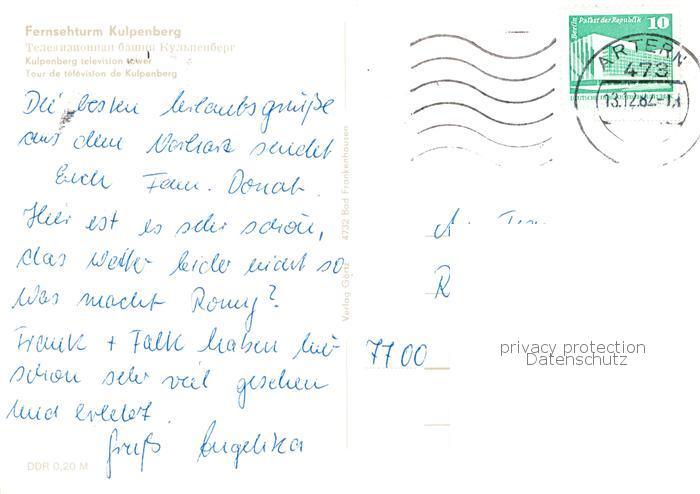 Fernsehturm Kulpenberg
Телевизионная башня Кульпенберг
Kulpenberg television tower
Tour de télévision de Kulpenberg
Die besten Urlaubsgrüße
aus dem Vorharz sendet
Euch Fam. Donat.
Hier ist es sehr schön,
das Wetter leider nicht so
Was macht Romy?
Frank + Falk haben hier
schon sehr viel gesehen
und erlebt.
Gruß Angelika
DDR 0,20 M
Verlag Görtz 4732 Bad Frankenhausen
Berlin Palast der Republik
10
ARTERN
473
13.12.82
7700
privacy protection
Datenschutz